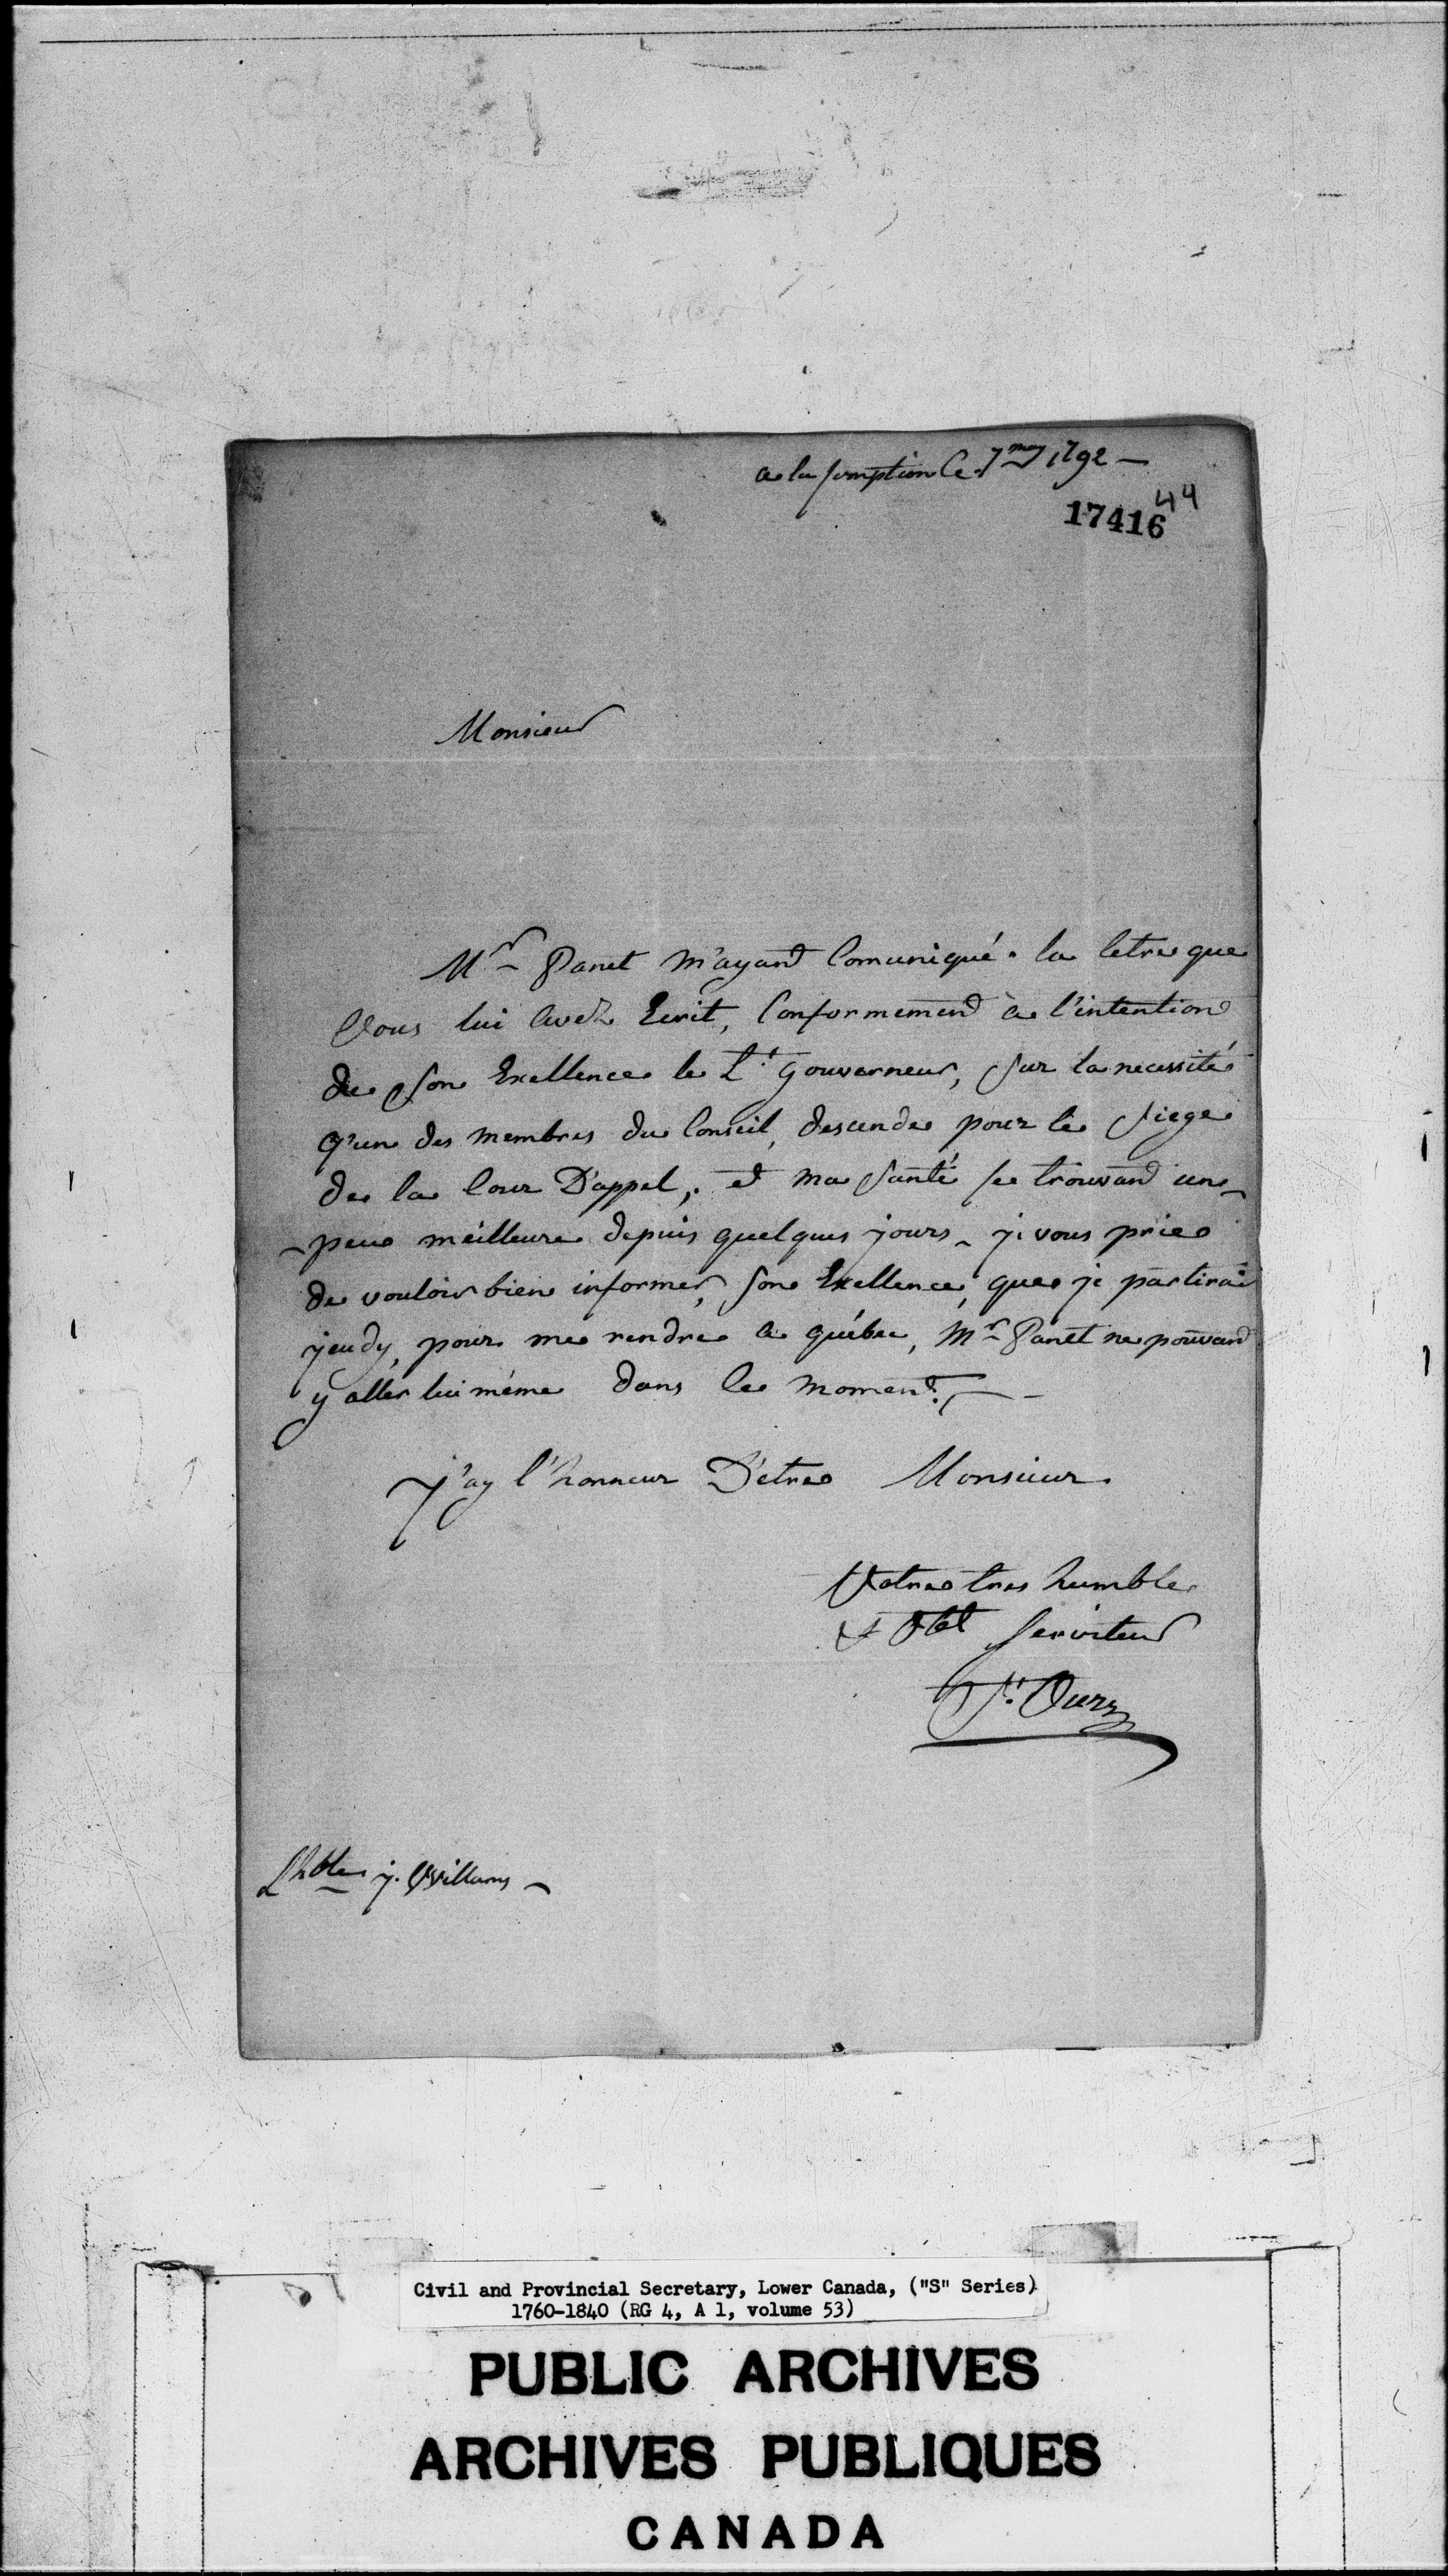 a la somption Ce 7 may 1792 —
44
17416
Monsieur
Mr Panet m'ayant Comuniqué la letre que
Vous lui avez Ecrit, Conformement a l'intention
de Son Exellence le Lt gouverneur, Sur la necessité
q'un des membres du Conseil, descende pour le Siege
de la Cour D'appel, et ma Santé se trouvant un
peu meilleure depuis quelques jours - je vous prie
de vouloir bien informer, Son Exellence, que je partirai
jeudy, pour me rendre a québec, Mr Panet ne pouvant
y aller lui même dans le moment. —
J'ay l'honneur D'etre Monsieur.
Votre tres humble
& Obt Serviteur
St. Ours
Lhble j. Williams -
Civil and Provincial Secretary, Lower Canada, ("S" Series)
1760-1840 (RG 4, A 1, volume 53)
PUBLIC ARCHIVES
ARCHIVES PUBLIQUES
CANADA